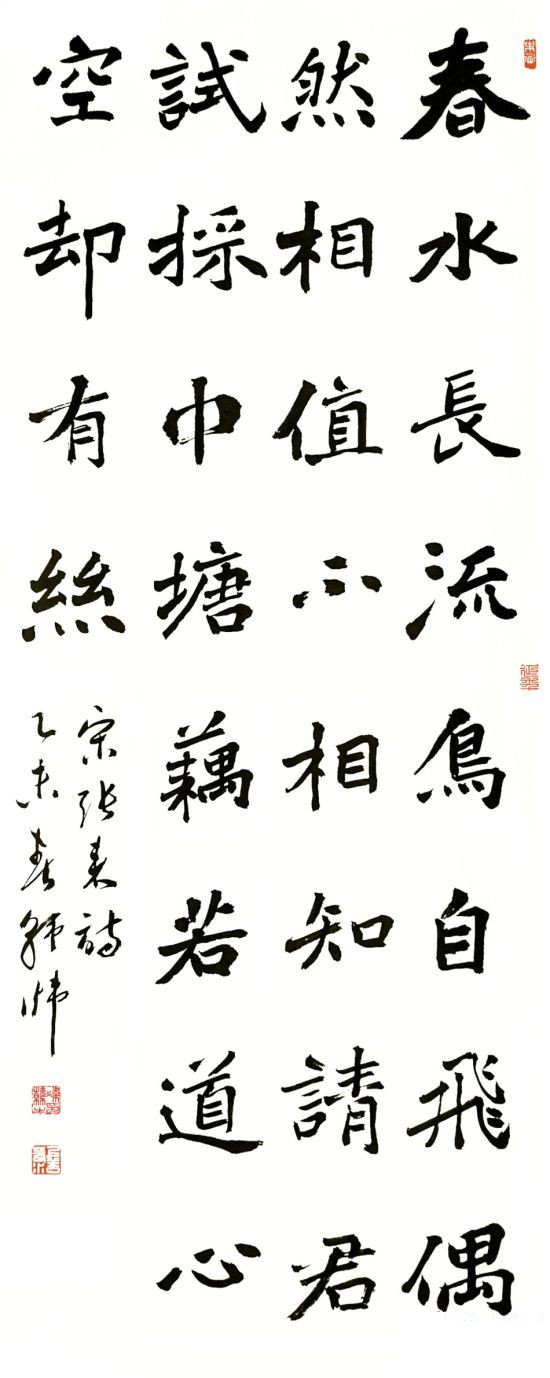 春水長流鳥自飛偶
然相值不相知請君
試採中塘藕若道心
空却有絲
宋張耒詩
乙未春